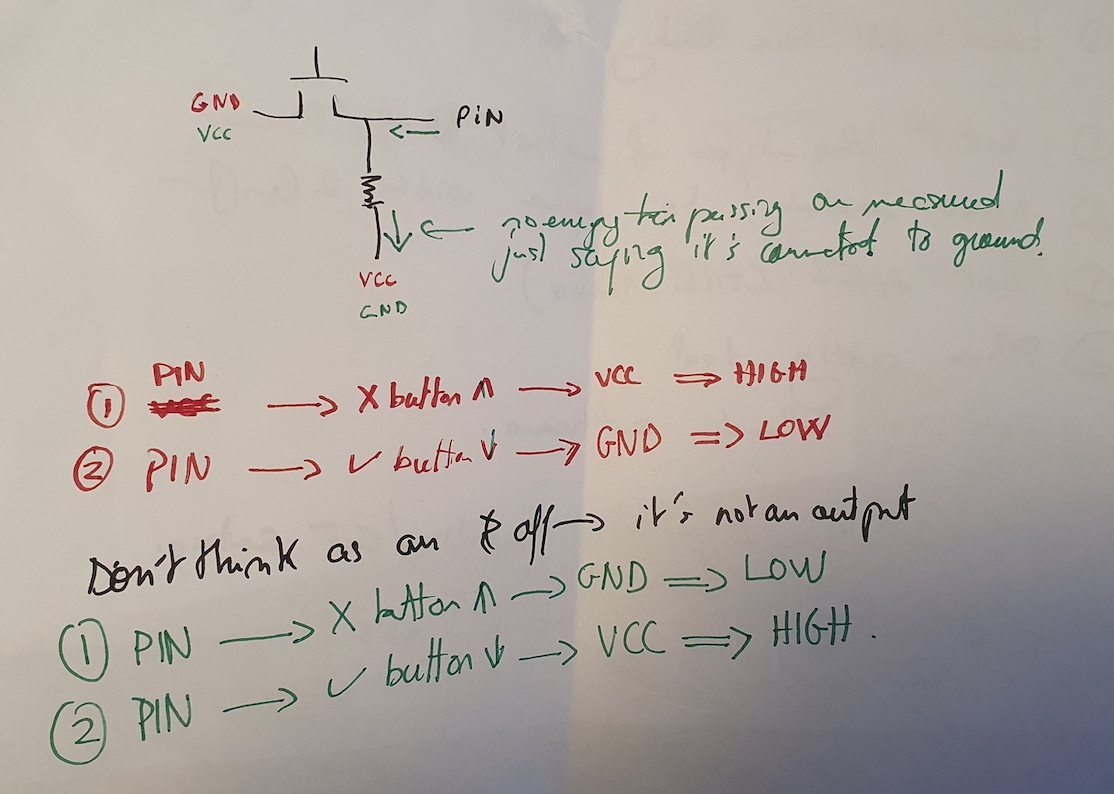 GND
VCC
PIN
no energy passing or measured
just saying it's connected to ground.
VCC
GND
PIN
① → X button ↑ → VCC ⇒ HIGH
② PIN → ✓ button ↓ → GND ⇒ LOW
Don't think as an off → it's not an output
① PIN → X button ↑ → GND ⇒ LOW
② PIN → ✓ button ↓ → VCC ⇒ HIGH.